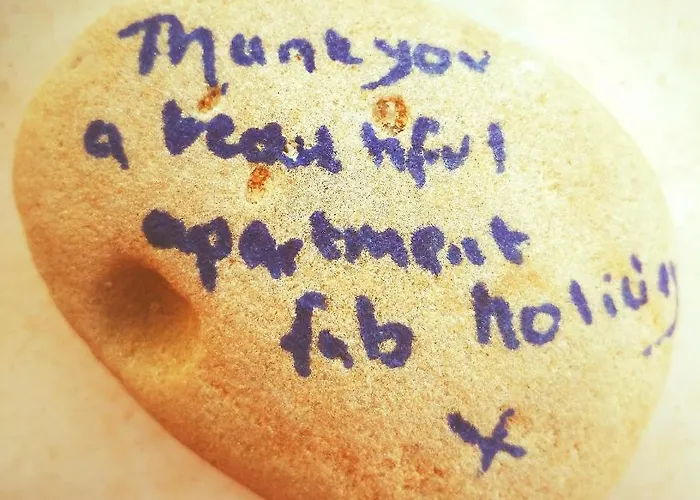 Thank you
a beautiful
apartment
fab holiday
x